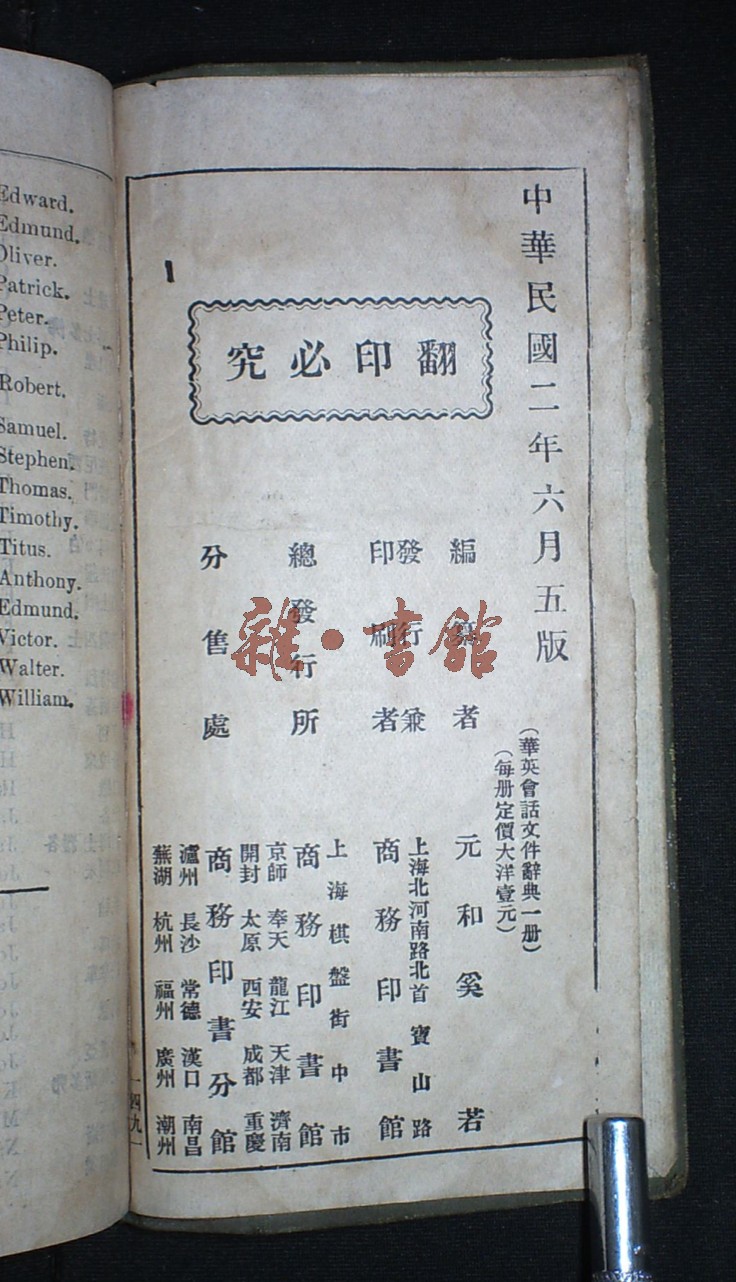 Edward.
Edmund.
Oliver.
Patrick.
Peter.
Philip.
Robert.
Samuel.
Stephen.
Thomas.
Timothy.
Titus.
Anthony.
Edmund.
Victor.
Walter.
William.
中華民國二年六月五版
(華英會話文件辭典一册)
(每册定價大洋壹元)
翻印必究
編纂者
元和奚若
發行兼
印刷者
上海北河南路北首寶山路
商務印書館
總發行所
上海棋盤街中市
商務印書館
分售處
京師 奉天 龍江 天津 濟南
開封 太原 西安 成都 重慶
商務印書分館
瀘州 長沙 常德 漢口 南昌
蕪湖 杭州 福州 廣州 潮州
一四九一
雜·書館